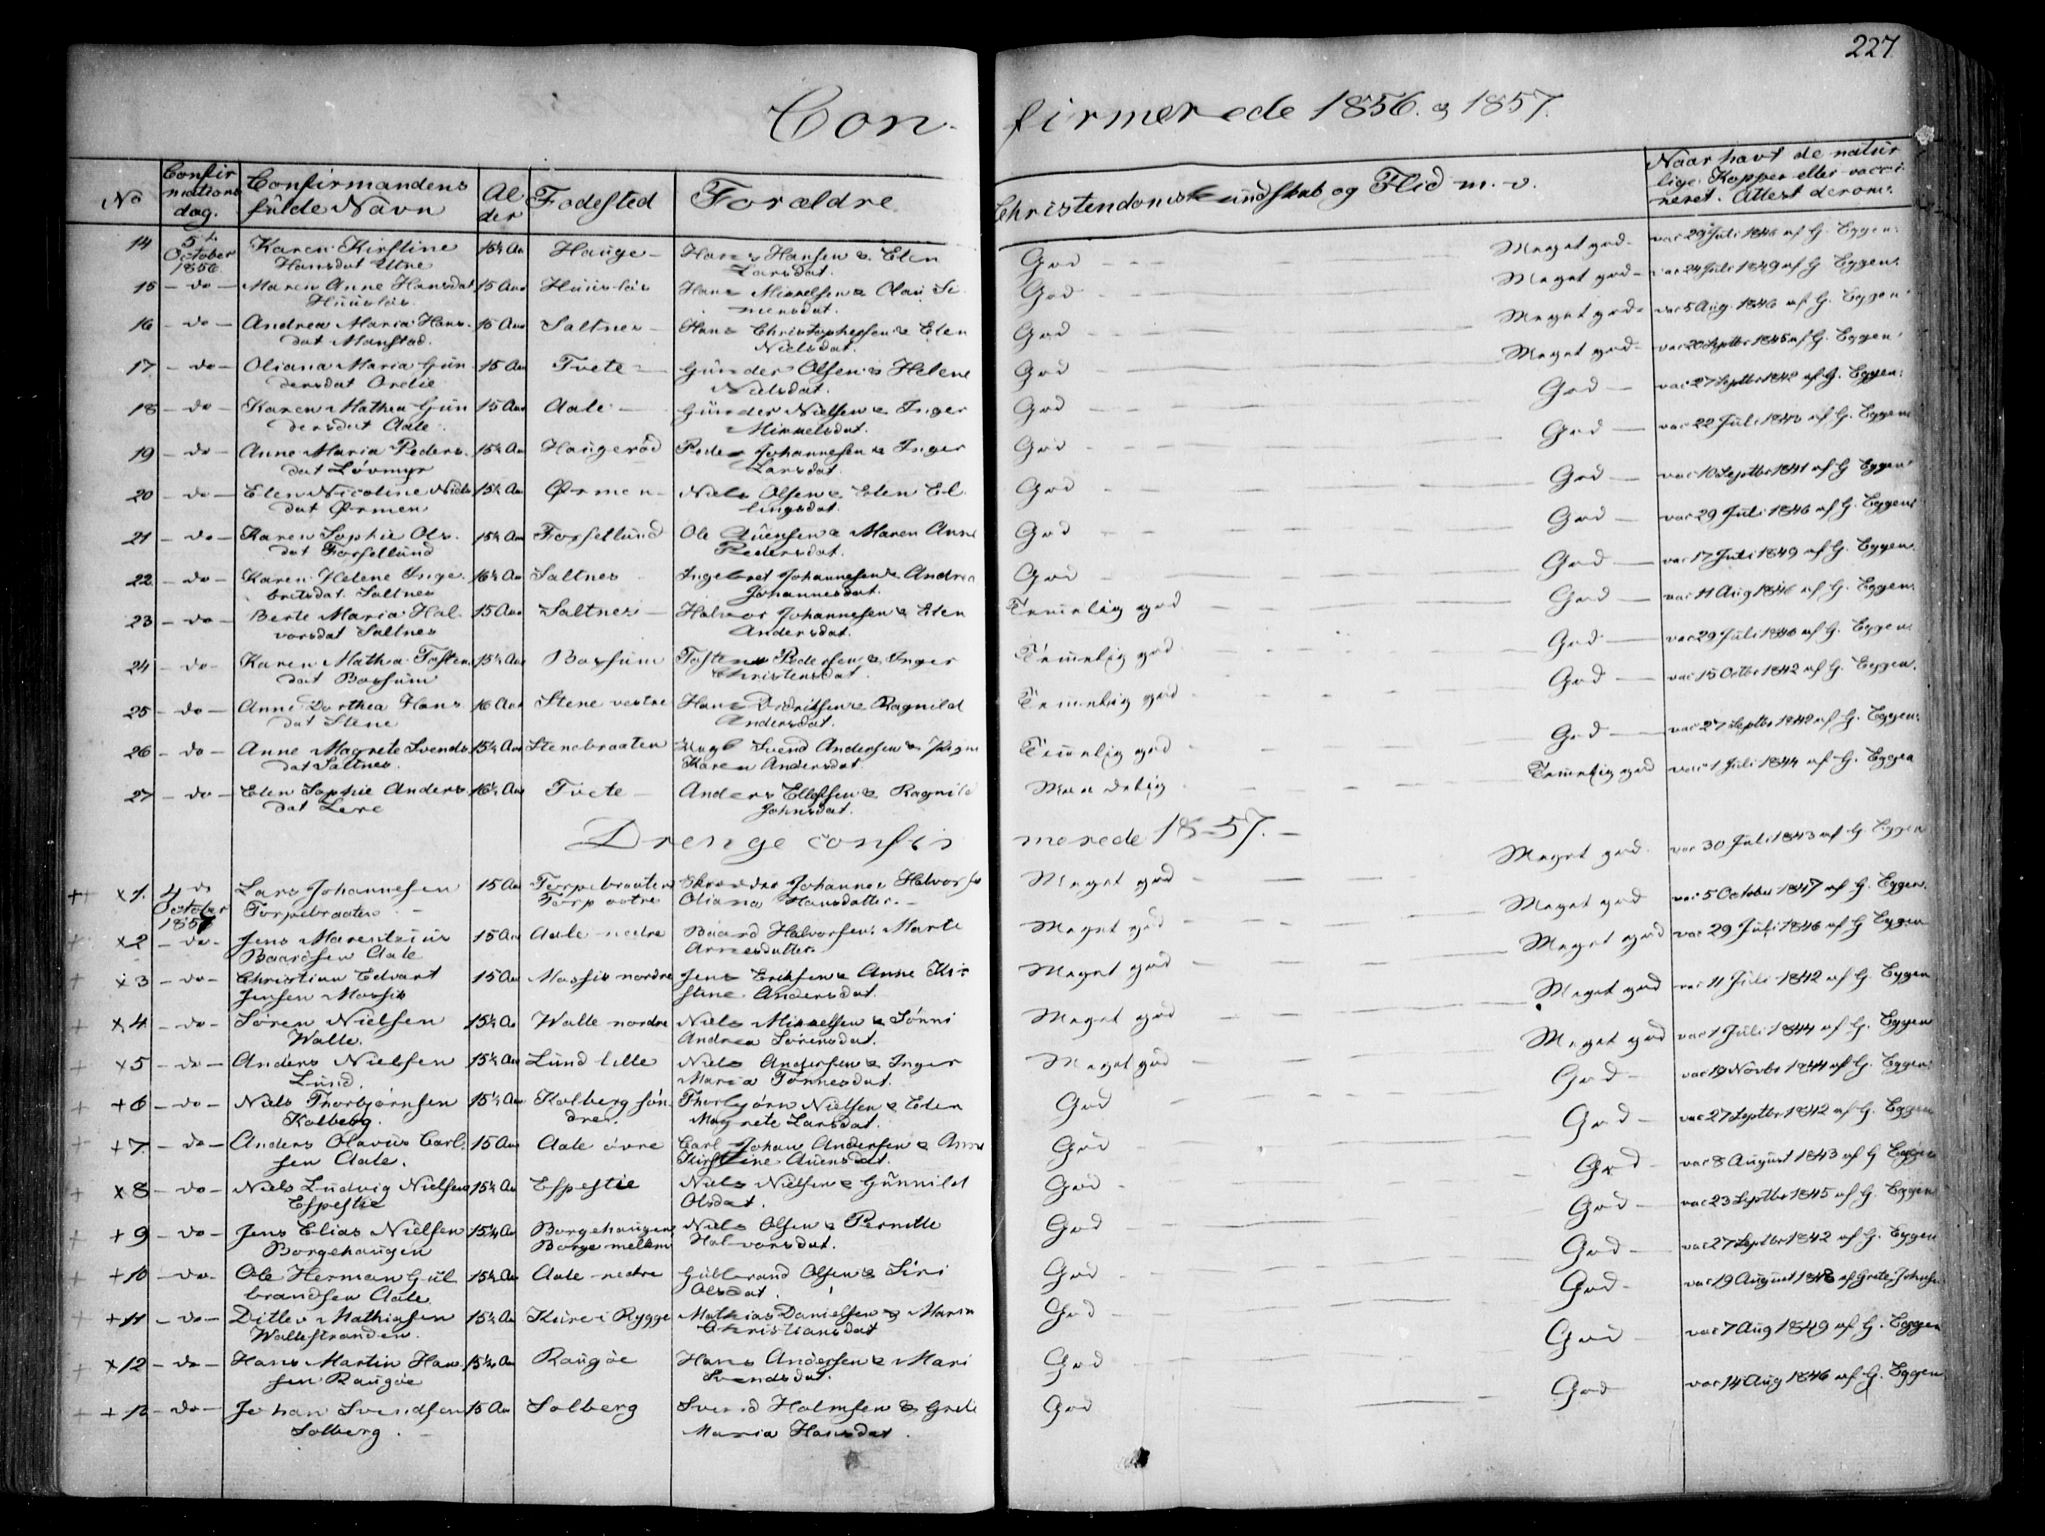 227.
Confirmerede 1856. og 1857.
No | Confirmations dag. | Confirmandens fulde Navn | Alder | Fødested | Forældre | Christendomskundskab og Flid m. v. | Naar havt de naturlige Kopper eller vaccineret. Attest derom:
14 | 5te October 1856 | Karen Kirstine Hansdat | 15½ Aar | Hauge | Hans Hansen & Elen Larsdat. | God | Meget god | vac 29 Juli 1846 af G. Eggen
15 | do | Maren Anne Hansdat Huusløs | 15 Aar | Huusløs | Hans Mikkelsen & Olau Simensdat. | God | Meget god | vac 24 Juli 1849 af G. Eggen
16 | do | Andrea Maria Hansdat Manstad. | 15 Aar | Saltnes | Hans Christophersen & Elen Nielsdat. | God | Meget god | vac 5 Aug. 1846 af G. Eggen
17 | do | Oliana Maria Gundersdat | 15 Aar | Tvete | Gunder Olsen & Helene Nielsdat. | God | Meget god | vac 20 Septbr 1845 af G. Eggen
18 | do | Karen Mathea Gundersdat Aale | 15 Aar | Aale | Gunder Nielsen & Inger Mikkelsdat. | God | God | vac 27 Septbr 1842 af G. Eggen
19 | do | Anne Maria Pedersdat Løvmyr | 15½ Aar | Haugerød | Peder Johannesen & Inger Larsdat. | God | God | vac 22 Juli 1843 af G. Eggen
20 | do | Elen Nicoline Nielsdat Ørmen | 15½ Aar | Ørmen | Niels Olsen & Elen Ellingsdat. | God | God | vac 10 Septbr 1841 af G. Eggen
21 | do | Karen Sophie Olsdat Forsellund | 15½ Aar | Forsellund | Ole Auensen & Maren Anne Pedersdat. | God | God | vac 29 Juli 1846 af G. Eggen
22 | do | Karen Helene Ingebritsdat. Saltnes | 16½ Aar | Saltnes | Ingebret Johannesen & Andrea Johannesdat. | God | God | vac 17 Juli 1849 af G. Eggen
23 | do | Berte Maria Halvorsdat Saltnes | 15 Aar | Saltnes | Halvor Johannesen & Elen Andersdat. | Temmelig god | God | vac 11 Aug 1846 af G. Eggen
24 | do | Karen Mathea Tostensdat Bossum | 15½ Aar | Bossum | Tosten Pedersen & Inger Christensdat. | Temmelig god | God | vac 29 Juli 1846 af G. Eggen
25 | do | Anne Dorthea Hansdat Stene | 16 Aar | Stene vestre | Hans Didriksen & Ragnild Andersdat. | Temmelig god | God | vac 15 Octbr 1842 af G. Eggen
26 | do | Anne Magrete Svendsdat Saltnes. | 15½ Aar | Stenebraaten | Ungk Svend Andersen & Pigen Karen Andersdat. | Temmelig god | God | vac 27 Septbr 1842 af G. Eggen
27 | do | Elen Sophie Andersdat Lere | 16½ Aar | Tvete | Anders Ellefsen & Ragnild Johnsdat. | Maadelig | Temmelig god | vac 1 Juli 1844 af G. Eggen
Drenge confirmerede 1857.
×1. | 4de October 1857 | Lars Johannesen Torpebraaten | 15 Aar | Torpebraaten Torp østre | Skrædder Johannes Halvorsen Oliana Hansdatter. | Meget god | Meget god | vac 30 Juli 1843 af G. Eggen
×2 | do | Jens Marentsius Baardsen Aale | 15 Aar | Aale nedre | Baard Halvorsen. Marte Arnesdatter. | Meget god | Meget god | vac 5 October 1847 af G. Eggen
×3 | do | Christian Edvart Jensen Mossik | 15 Aar | Mossik nordre | Jens Eriksen & Anne Kirstine Andersdat. | Meget god | Meget god | vac 29 Juli 1846 af G. Eggen
×4 | do | Søren Nielsen Walle. | 15½ Aar | Walle nordre | Niels Mikkelsen & Sønni Andrea Sørensdat. | Meget god | Meget god | vac 11 Juli 1842 af G. Eggen
×5 | do | Anders Nielsen Lund. | 15½ Aar | Lund lille | Niels Andersen & Inger Maria Tønnesdat. | Meget god | Meget god | vac 1 Juli 1844 af G. Eggen
+6 | do | Niels Thorbjørnsen Kolberg. | 15½ Aar | Kolberg søndre. | Thorbjørn Nielsen & Elen Magrete Larsdat. | God | God | vac 19 Novbr 1844 af G. Eggen
+7 | do | Anders Olavus Carlsen Aale. | 15 Aar | Aale øvre | Carl Johan Andersen & Anne Kirstine Auensdat. | God | God | vac 27 Septbr 1842 af G. Eggen
×8 | do | Niels Ludvig Nielsen Espestie | 15½ Aar | Espestie | Niels Nielsen & Gunnild Olsdat. | God | God | vac 8 August 1843 af G. Eggen
+9 | do | Jens Elias Nielsen Borgehaugen | 15½ Aar | Borgehaugen Borge mellem | Niels Olsen & Pernille Halvorsdat. | God | God | vac 23 Septbr 1845 af G. Eggen
+10 | do | Ole Herman Gulbrandsen Aale. | 15½ Aar | Aale nedre | Gulbrand Olsen & Siri Olsdat. | God | God | vac 27 Septbr 1842 af G. Eggen
+11 | do | Ditlev Mathiasen Wallestranden. | 15½ Aar | Kure i Rygge | Mathias Danielsen & Maren Christiansdat | God | God | vac 19 August 1848 af Grete Johnsen
×12 | do | Hans Martin Hansen Raugøe | 15½ Aar | Raugøe | Hans Andersen & Mari Svendsdat. | God | God | vac 7 Aug 1849 af G. Eggen
+13 | do | Johan Svendsen Solberg. | 15 Aar | Solberg | Svend Holmsen & Grete Maria Hansdat. | God | God | vac 14 Aug 1846 af G. Eggen